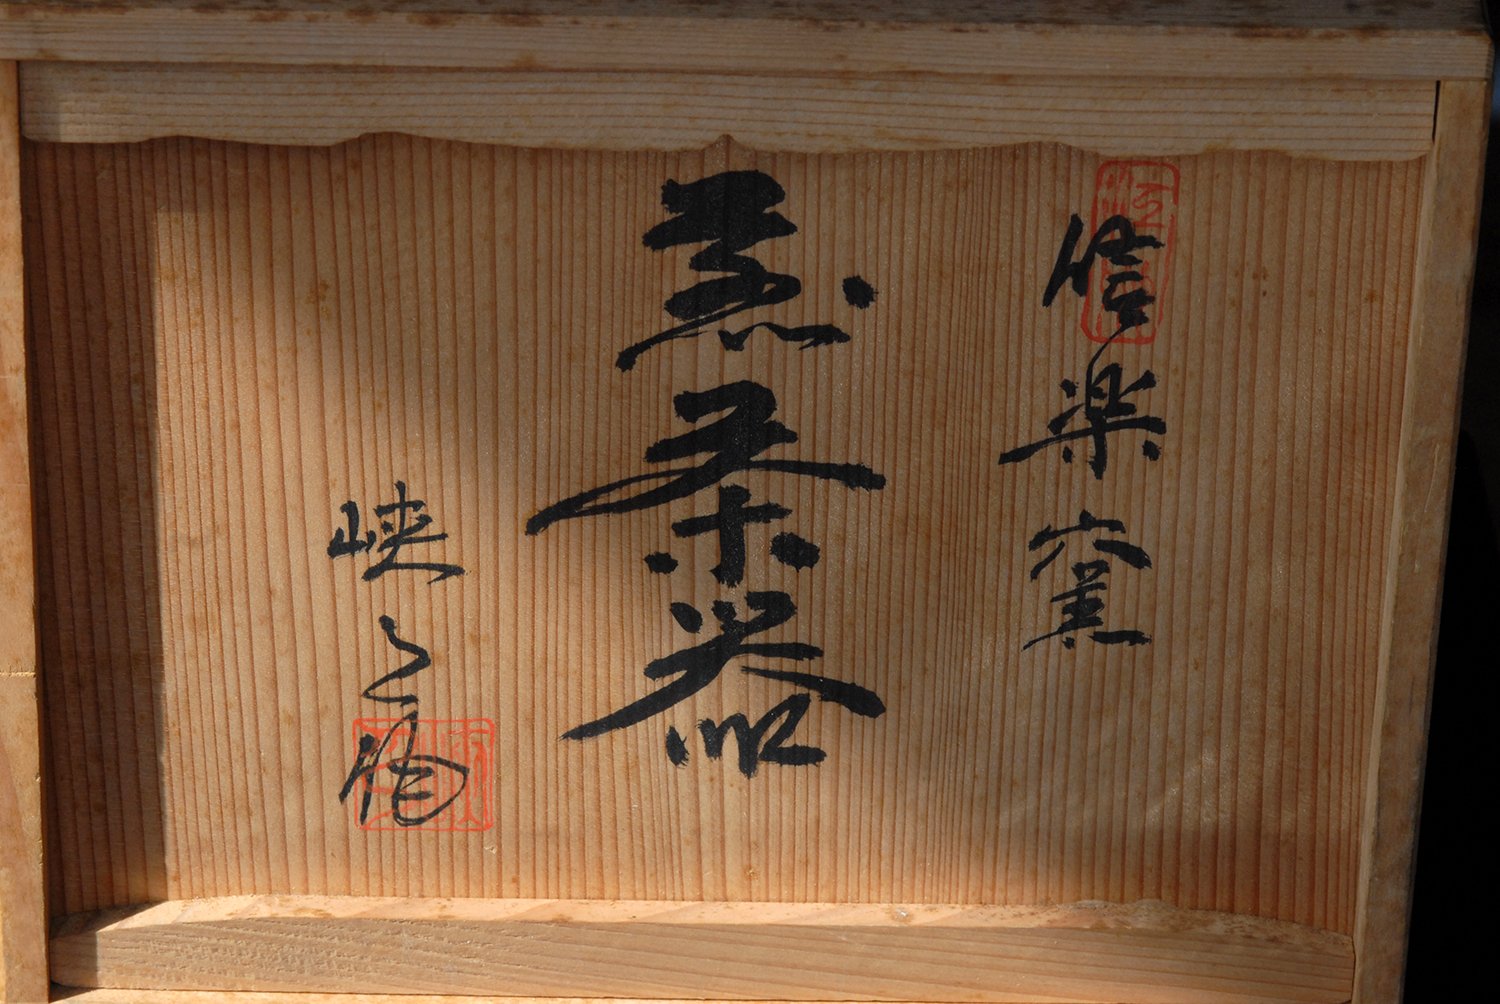 信楽窯
煎茶器
峡之作